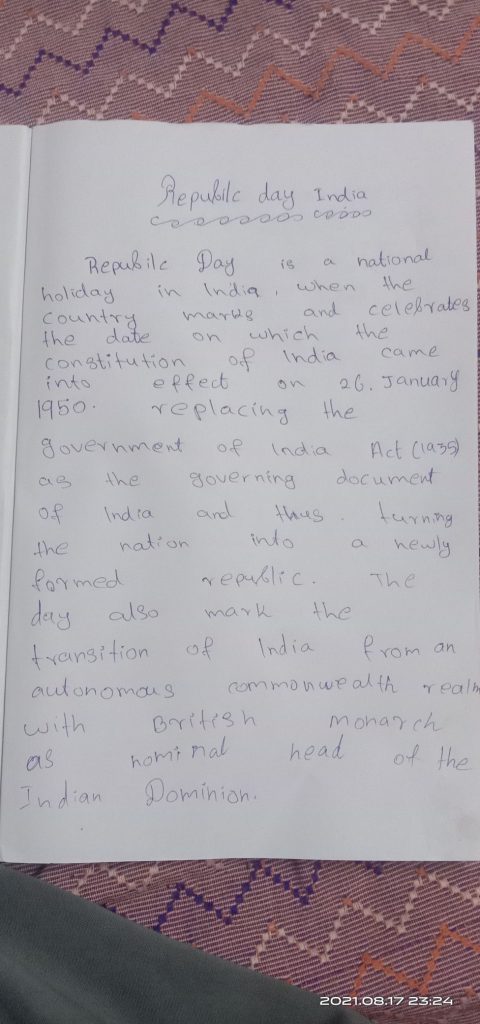 Repubilc day India
Repubilc Day is a national
holiday in India, when the
country marks and celebrates
the date on which the
constitution of India came
into effect on 26. January
1950. replacing the
government of India Act (1935)
as the governing document
of India and thus. turning
the nation into a newly
formed republic. The
day also mark the
transition of India from an
autonomous commonwealth realm
with British monarch
as nominal head of the
Indian Dominion.
2021.08.17 23:24